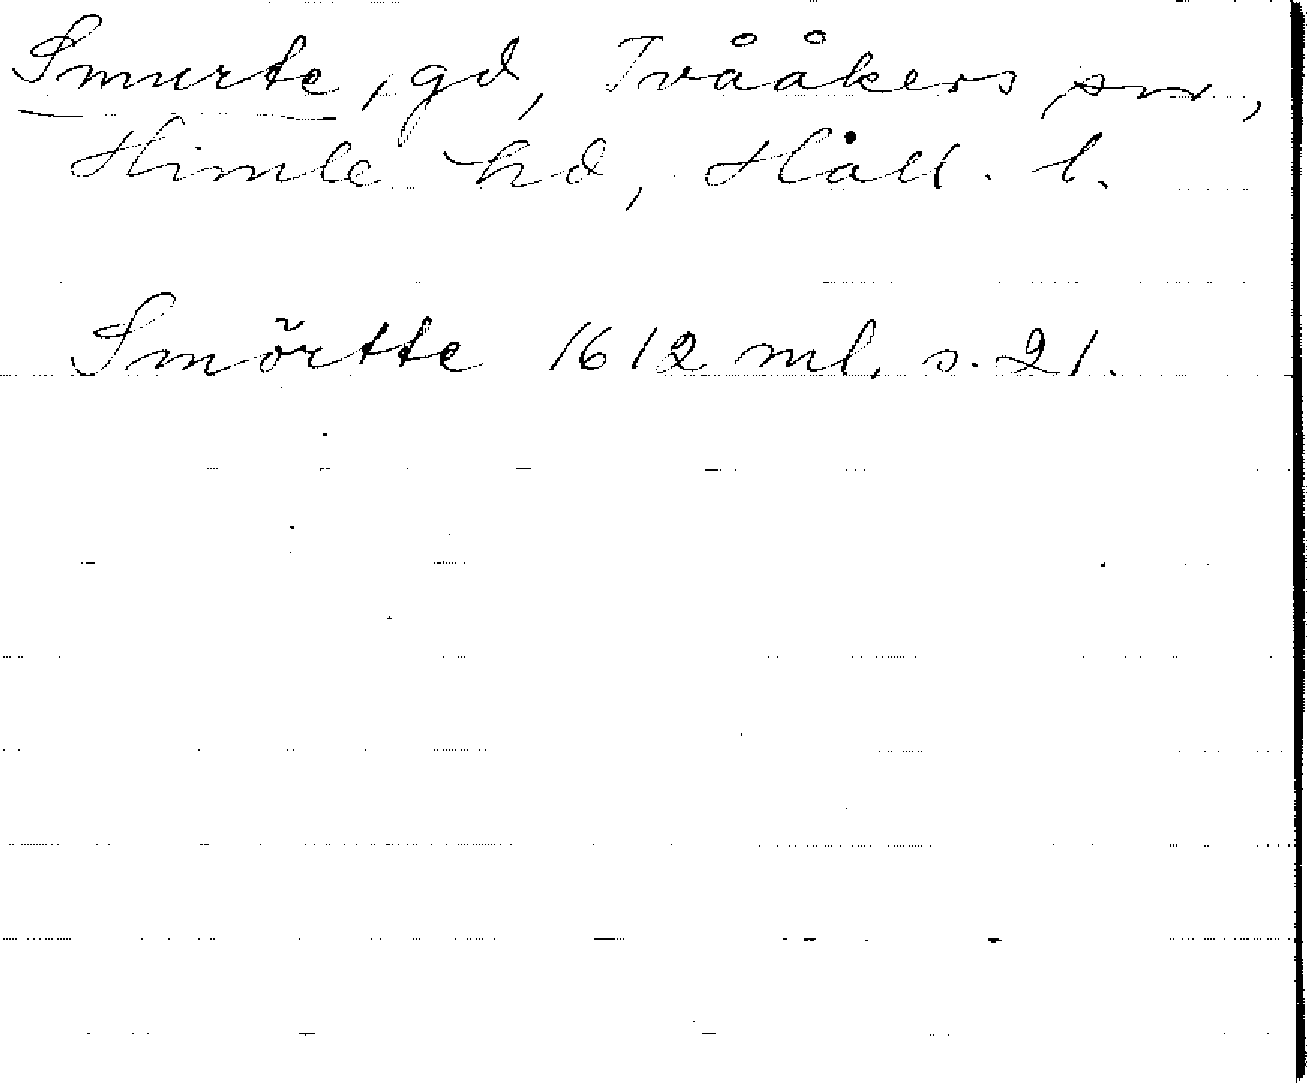 Smurte, gd, Tvååkers sn,
Himle hd, Hall. l.
Smörtte 1612 ml. s. 21.